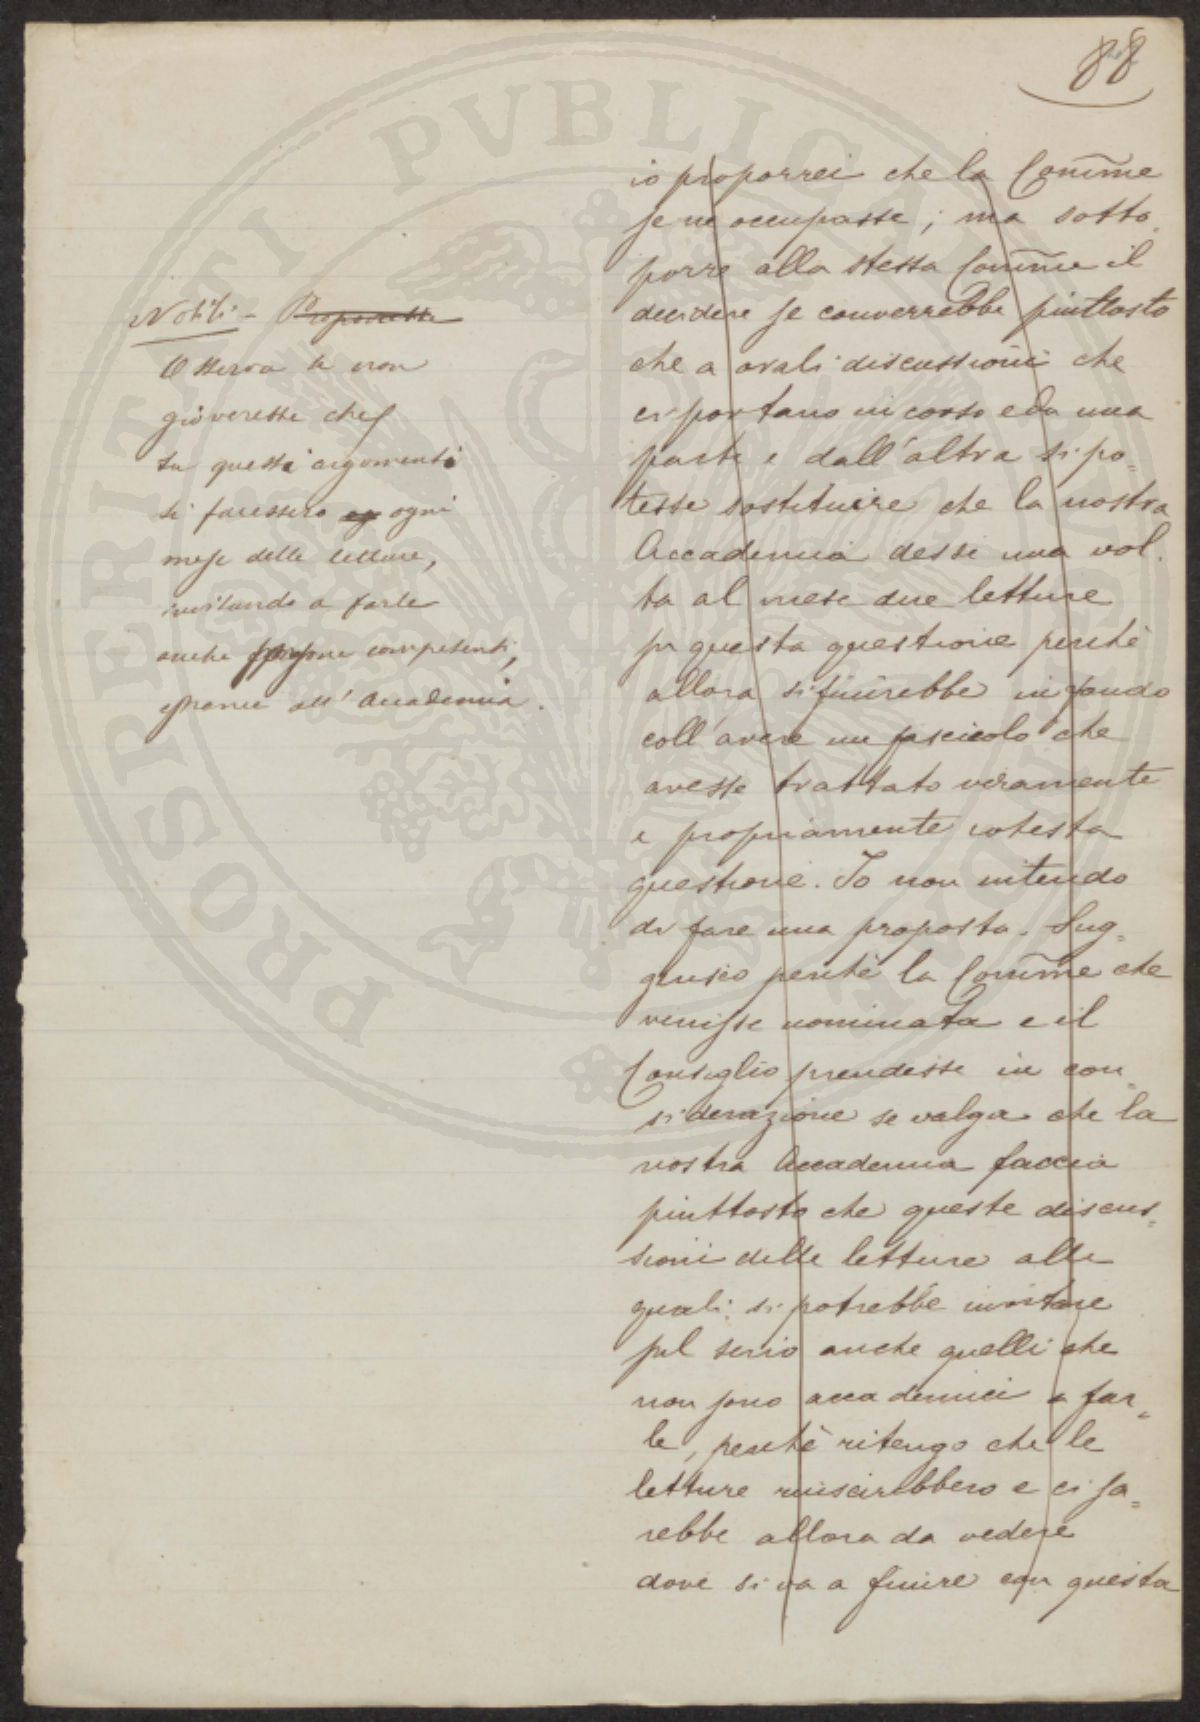 88
Nobili - Proporrebbe
Osserva se non
gioverebbe che
su questi argomenti
si facessero ogni
mese delle letture,
invitando a farle
anche persone competenti,
estranee all'Accademia.
io proporrei che la Comm̅e
se ne occupasse; ma sotto
porre alla stessa Comm̅e il
decidere se converrebbe piuttosto
che a orali discussioni che
ci portano in corso e da una
parte e dall'altra si po=
tesse sostituire che la nostra
Accademia desse una vol.
ta al mese due letture
su questa questione perchè
allora si finirebbe in fondo
coll'avere un fascicolo che
avesse trattato veramente
e propriamente cotesta
questione. Io non intendo
di fare una proposta. Sug=
gerisco perchè la Comm̅e che
venisse nominata e il
Consiglio prendesse in con=
siderazione se valga che la
nostra Accademia faccia
piuttosto che queste discus=
sioni delle letture alle
quali si potrebbe invitare
sul serio anche quelli che
non sono accademici a far=
le, perchè ritengo che le
letture riuscirebbero e ci sa=
rebbe allora da vedere
dove si va a finire con questa
PROSPERITATI PVBLICAE